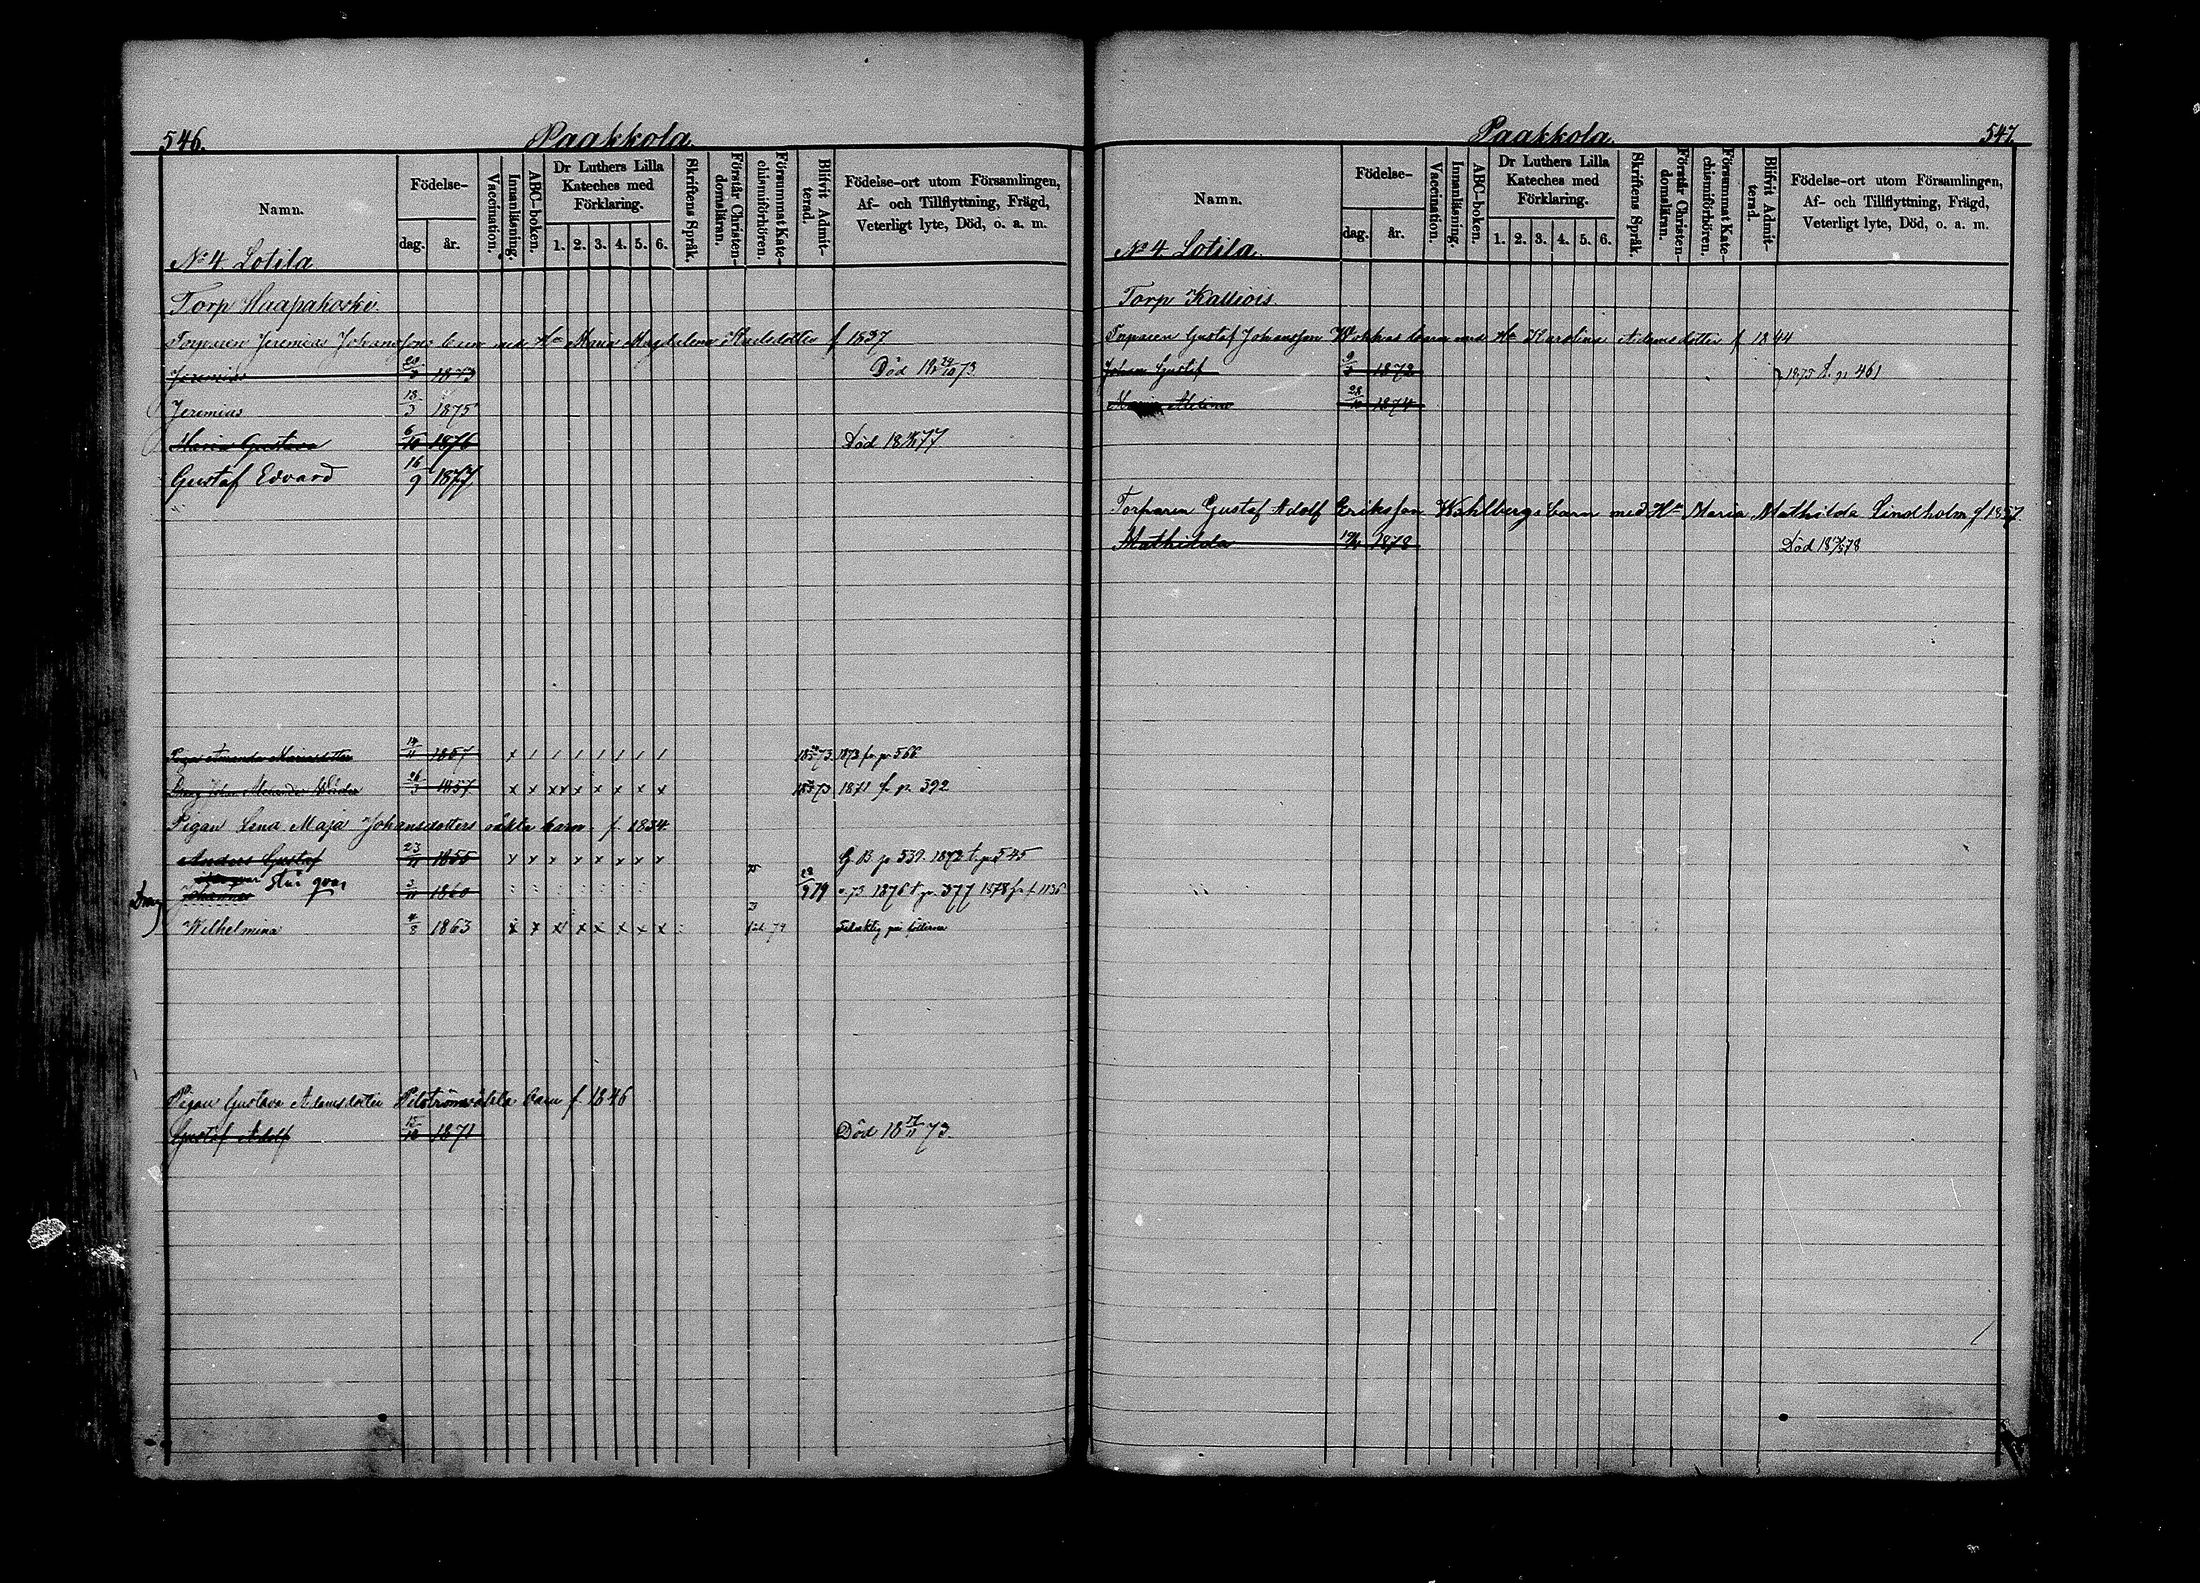 546. Paakkola.
Namn. Födelse- dag. år. Vaccination. Innanläsning. ABC-boken. Dr Luthers Lilla Kateches med Förklaring. 1. 2. 3. 4. 5. 6. Skriftens Språk. Förstår Christendomsläran. Försummat Katechismiförhören. Blifvit Admitterad. Födelse-ort utom Församlingen, Af- och Tillflyttning, Frägd, Veterligt lyte, Död, o. a. m.
No 4 Lotila
Torp Haapakoski.
Torparen Jeremias Johanssons barn med Hu Maria Magdalena f 1837
Jeremias 1873 Död 18 24/10 73.
Jeremias 18/3 1875
Maria Gustava 6/10 1876 Död 18 77
Gustaf Edvard 16/9 1877
Piga Amanda 1857 x 1 1 1 1 1 1 1 73 1872 fr. p. 566
Dräng Johan 26/3 1857 x x xx x x x x x 73 1871 fr. p. 392
Pigan Lena Maja Johansdotters oäkta barn. f. 1834
Anders Gustaf 23/11 1855 x x x x x x x x G. B. p 539. 1872 t. p 545
står qvar
Johannes 1860 79 73 1876 t. p. 377 1878 fr. f. 1136
Wilhelmina 4/8 1863 x x x x x x x x 79 Felaktig på fötterna
Pigan Gustava Adamsdotter oäkta barn f. 1846
Gustaf Adolf 1871 Död 18 17/11 73.
Paakkola. 547.
Namn. Födelse- dag. år. Vaccination. Innanläsning. ABC-boken. Dr Luthers Lilla Kateches med Förklaring. 1. 2. 3. 4. 5. 6. Skriftens Språk. Förstår Christendomsläran. Försummat Katechismiförhören. Blifvit Admitterad. Födelse-ort utom Församlingen, Af- och Tillflyttning, Frägd, Veterligt lyte, Död, o. a. m.
No 4 Lotila.
Torp Kalliois.
Torparen Gustaf Johansson barn med Hu Karolina Adamsdotter f 1844
Johan Gustaf 1872 1875 t. p 461
Maria 1874
Torparen Gustaf Adolf Eriksson Wahlbergs barn med Hu Maria Mathilda Lindholm f 1857.
Mathilda 1878 Död 18 78